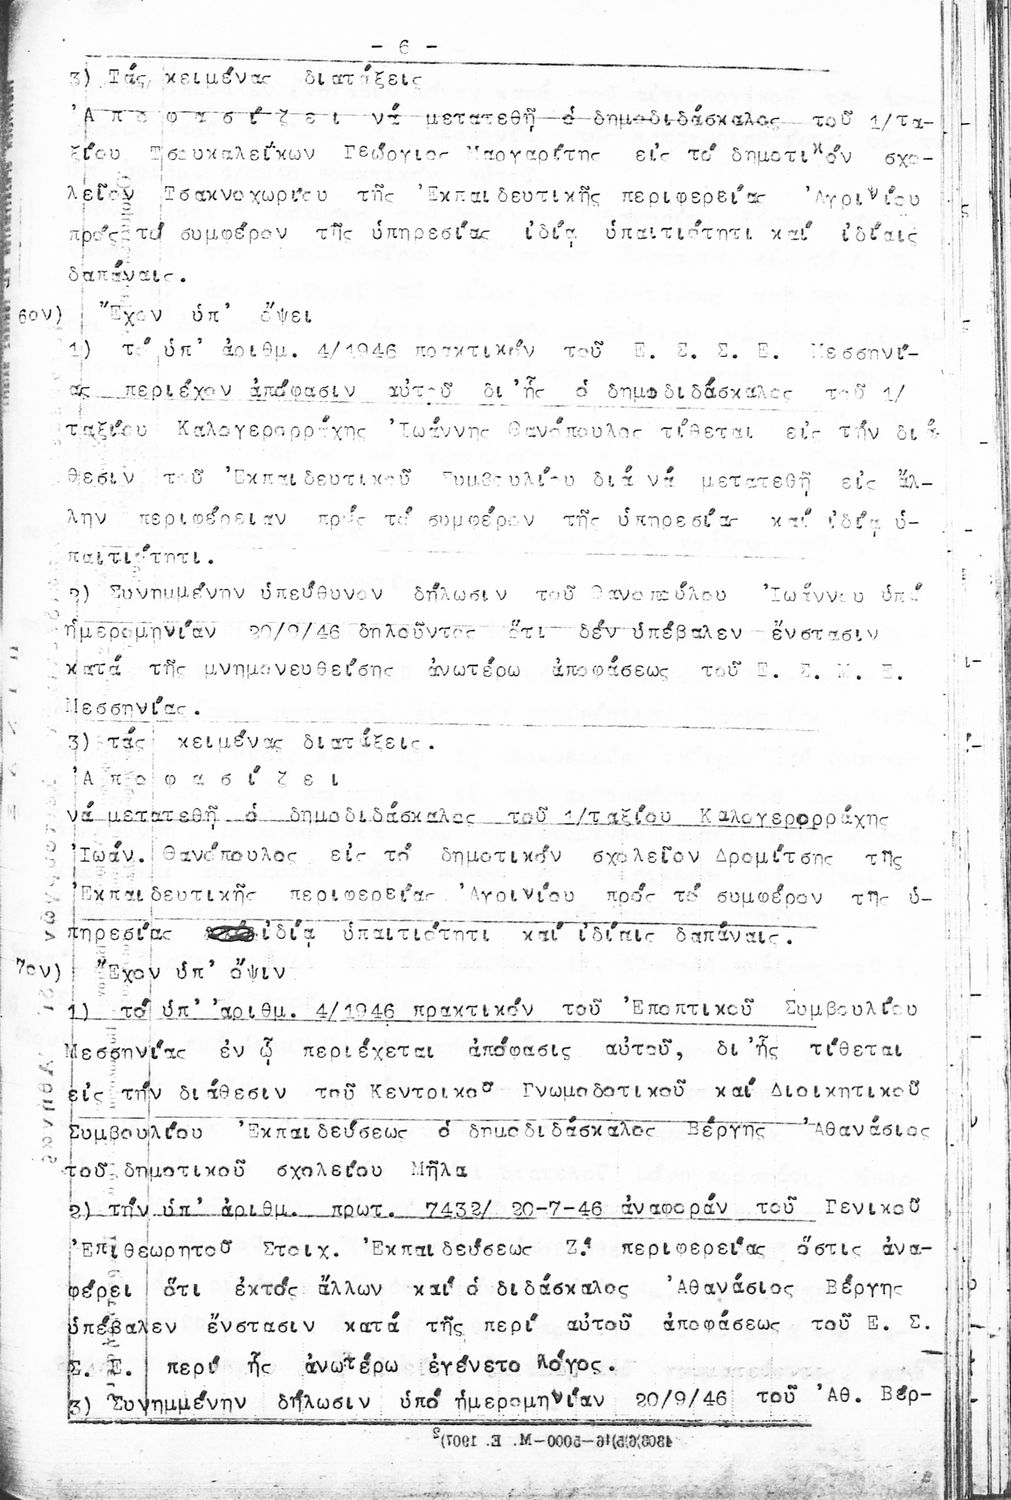 - 6 -
3) Τάς κειμένας διατάξεις
Ἀ π ο φ α σ ί ζ ε ι νά μετατεθῇ ὁ δημοδιδάσκαλος τοῦ 1/τα-
ξίου Τσουκαλείκων Γεώργιος Μαργαρίτης εἰς τό δημοτικόν σχο-
λεῖον Τσακνοχωρίου τῆς Ἐκπαιδευτικῆς περιφερείας Ἀγρινίου
πρός τό συμφέρον τῆς ὑπηρεσίας ἰδίᾳ ὑπαιτιότητι καί ἰδίαις
δαπάναις.
6ον) Ἔχον ὑπ' ὄψει
1) τό ὑπ' ἀριθμ. 4/1946 πρακτικόν τοῦ Ε. Σ. Σ. Ε. Μεσσηνί-
ας περιέχον ἀπόφασιν αὐτοῦ δι'ἧς ὁ δημοδιδάσκαλος τοῦ 1/
ταξίου Καλογερορράχης Ἰωάννης Θανόπουλος τίθεται εἰς τήν διά
θεσιν τοῦ Ἐκπαιδευτικοῦ Συμβουλίου διά νά μετατεθῇ εἰς ἄλ-
λην περιφέρειαν πρός τό συμφέρον τῆς ὑπηρεσίας καί ἰδίᾳ ὑ-
παιτιότητι.
2) Συνημμένην ὑπεύθυνον δήλωσιν τοῦ Θανοπούλου Ἰωάννου ὑπό
ἡμερομηνίαν 20/9/46 δηλοῦντος ὅτι δέν ὑπέβαλεν ἔνστασιν
κατά τῆς μνημονευθείσης ἀνωτέρω ἀποφάσεως τοῦ Ε. Σ. Μ. Ε.
Μεσσηνίας.
3) τάς κειμένας διατάξεις.
Ἀ π ο φ α σ ί ζ ε ι
νά μετατεθῇ ὁ δημοδιδάσκαλος τοῦ 1/ταξίου Καλογερορράχης
Ἰωάν. Θανόπουλος εἰς τό δημοτικόν σχολεῖον Δρομίτσης τῆς
Ἐκπαιδευτικῆς περιφερείας Ἀγρινίου πρός τό συμφέρον τῆς ὑ-
πηρεσίας ἰδίᾳ ὑπαιτιότητι καί ἰδίαις δαπάναις.
7ον) Ἔχον ὑπ' ὄψιν
1) τό ὑπ' ἀριθμ. 4/1946 πρακτικόν τοῦ Ἐποπτικοῦ Συμβουλίου
Μεσσηνίας ἐν ᾧ περιέχεται ἀπόφασις αὐτοῦ, δι'ἧς τίθεται
εἰς τήν διάθεσιν τοῦ Κεντρικοῦ Γνωμοδοτικοῦ καί Διοικητικοῦ
Συμβουλίου Ἐκπαιδεύσεως ὁ δημοδιδάσκαλος Βέργης Ἀθανάσιος
τοῦ δημοτικοῦ σχολείου Μῆλα
2) τήν ὑπ' ἀριθμ. πρωτ. 7432/ 20-7-46 ἀναφοράν τοῦ Γενικοῦ
Ἐπιθεωρητοῦ Στοιχ. Ἐκπαιδεύσεως Ζ.' περιφερείας ὅστις ἀνα-
φέρει ὅτι ἐκτός ἄλλων καί ὁ διδάσκαλος Ἀθανάσιος Βέργης
ὑπέβαλεν ἔνστασιν κατά τῆς περί αὐτοῦ ἀποφάσεως τοῦ Ε. Σ.
Σ. Ε. περί ἧς ἀνωτέρω ἐγένετο λόγος.
3) Συνημμένην δήλωσιν ὑπό ἡμερομηνίαν 20/9/46 τοῦ Ἀθ. Βέρ-